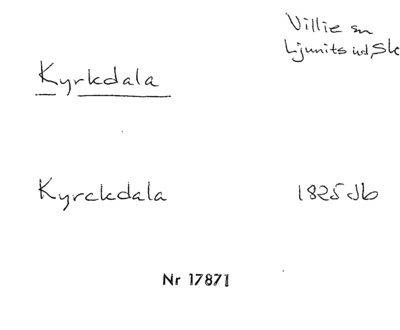 Villie sn
Ljunits hd, Sk
Kyrkdala
Kyrckdala 1825 Jb
Nr 17871